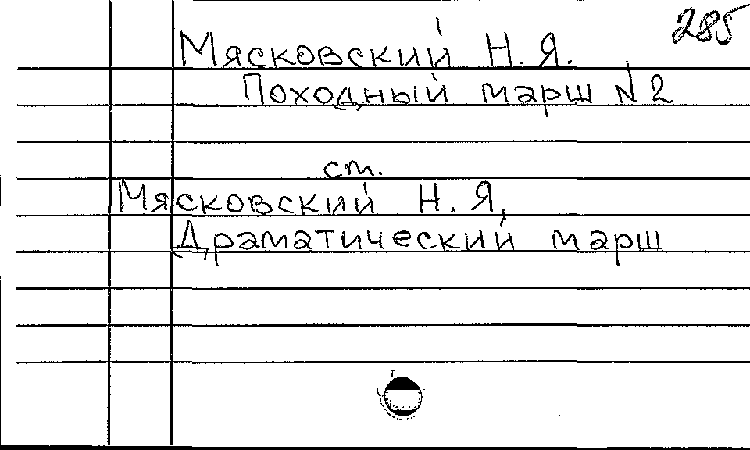 285
Мясковский Н. Я.
Походный марш N 2
ст.
Мясковский Н. Я,
Драматический марш